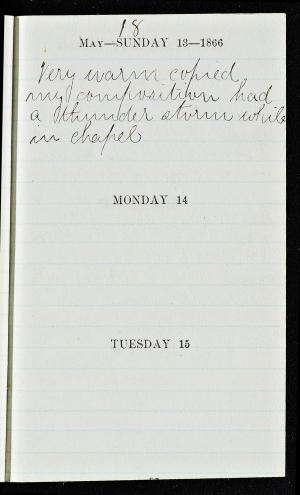 18
MAY—SUNDAY 13—1866
Very warm copied
my composition had
a thunder storm while
in chapel
MONDAY 14
TUESDAY 15